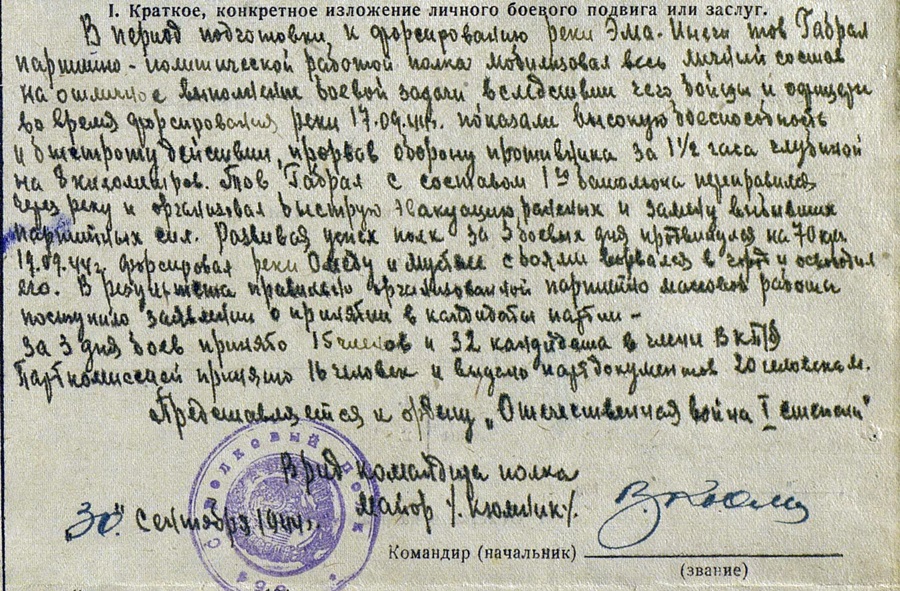 I. Краткое, конкретное изложение личного боевого подвига или заслуг.
В период подготовки к форсированию реки Эма-Иыги тов Габрал
партийно-политической работой полка мобилизовал весь личный состав
на отличное выполнение боевой задачи вследствии чего бойцы и офицеры
во время форсирования реки 17.09.44г. показали высокую боеспособность
и быстроту действий, прорвав оборону противника за 1½ часа глубиной
на 8 километров. Тов Габрал с составом 1го батальона переправился
через реку и организовал быструю эвакуацию раненых и замену выбывших
партийных сил. Развивая успех полк за 3 боевых дня продвинулся на 70 км
19.09.44г. форсировал реки и с боями ворвался в и освободил
его. В результате правильно организованной партийно массовой работы
поступило заявлений о принятии в кандидаты партии –
за 3 дня боев принято 15 членов и 32 кандидата в члены ВКПб
Парткомиссией принято 16 человек и выдано партдокументов 20 человекам.
Представляется к ордену „Отечественная война I степени"
Врид командира полка
майор /. Кюмник /.
30. сентября 1944г.
Командир (начальник)
(звание)
стрелковый полк